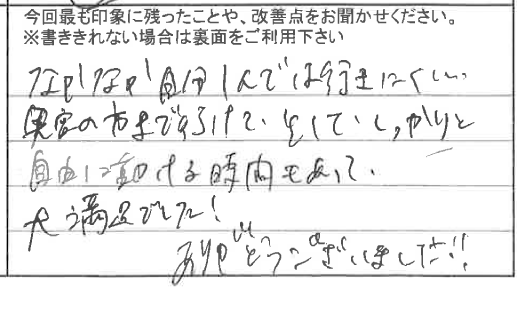 今回最も印象に残ったことや、改善点をお聞かせください。
※書ききれない場合は裏面をご利用下さい
なかなか自分1人では行きにくい
奥宮の方まで行けて、そしてしっかりと
自由に動ける時間もあって、
大満足でした!
ありがとうございました!!